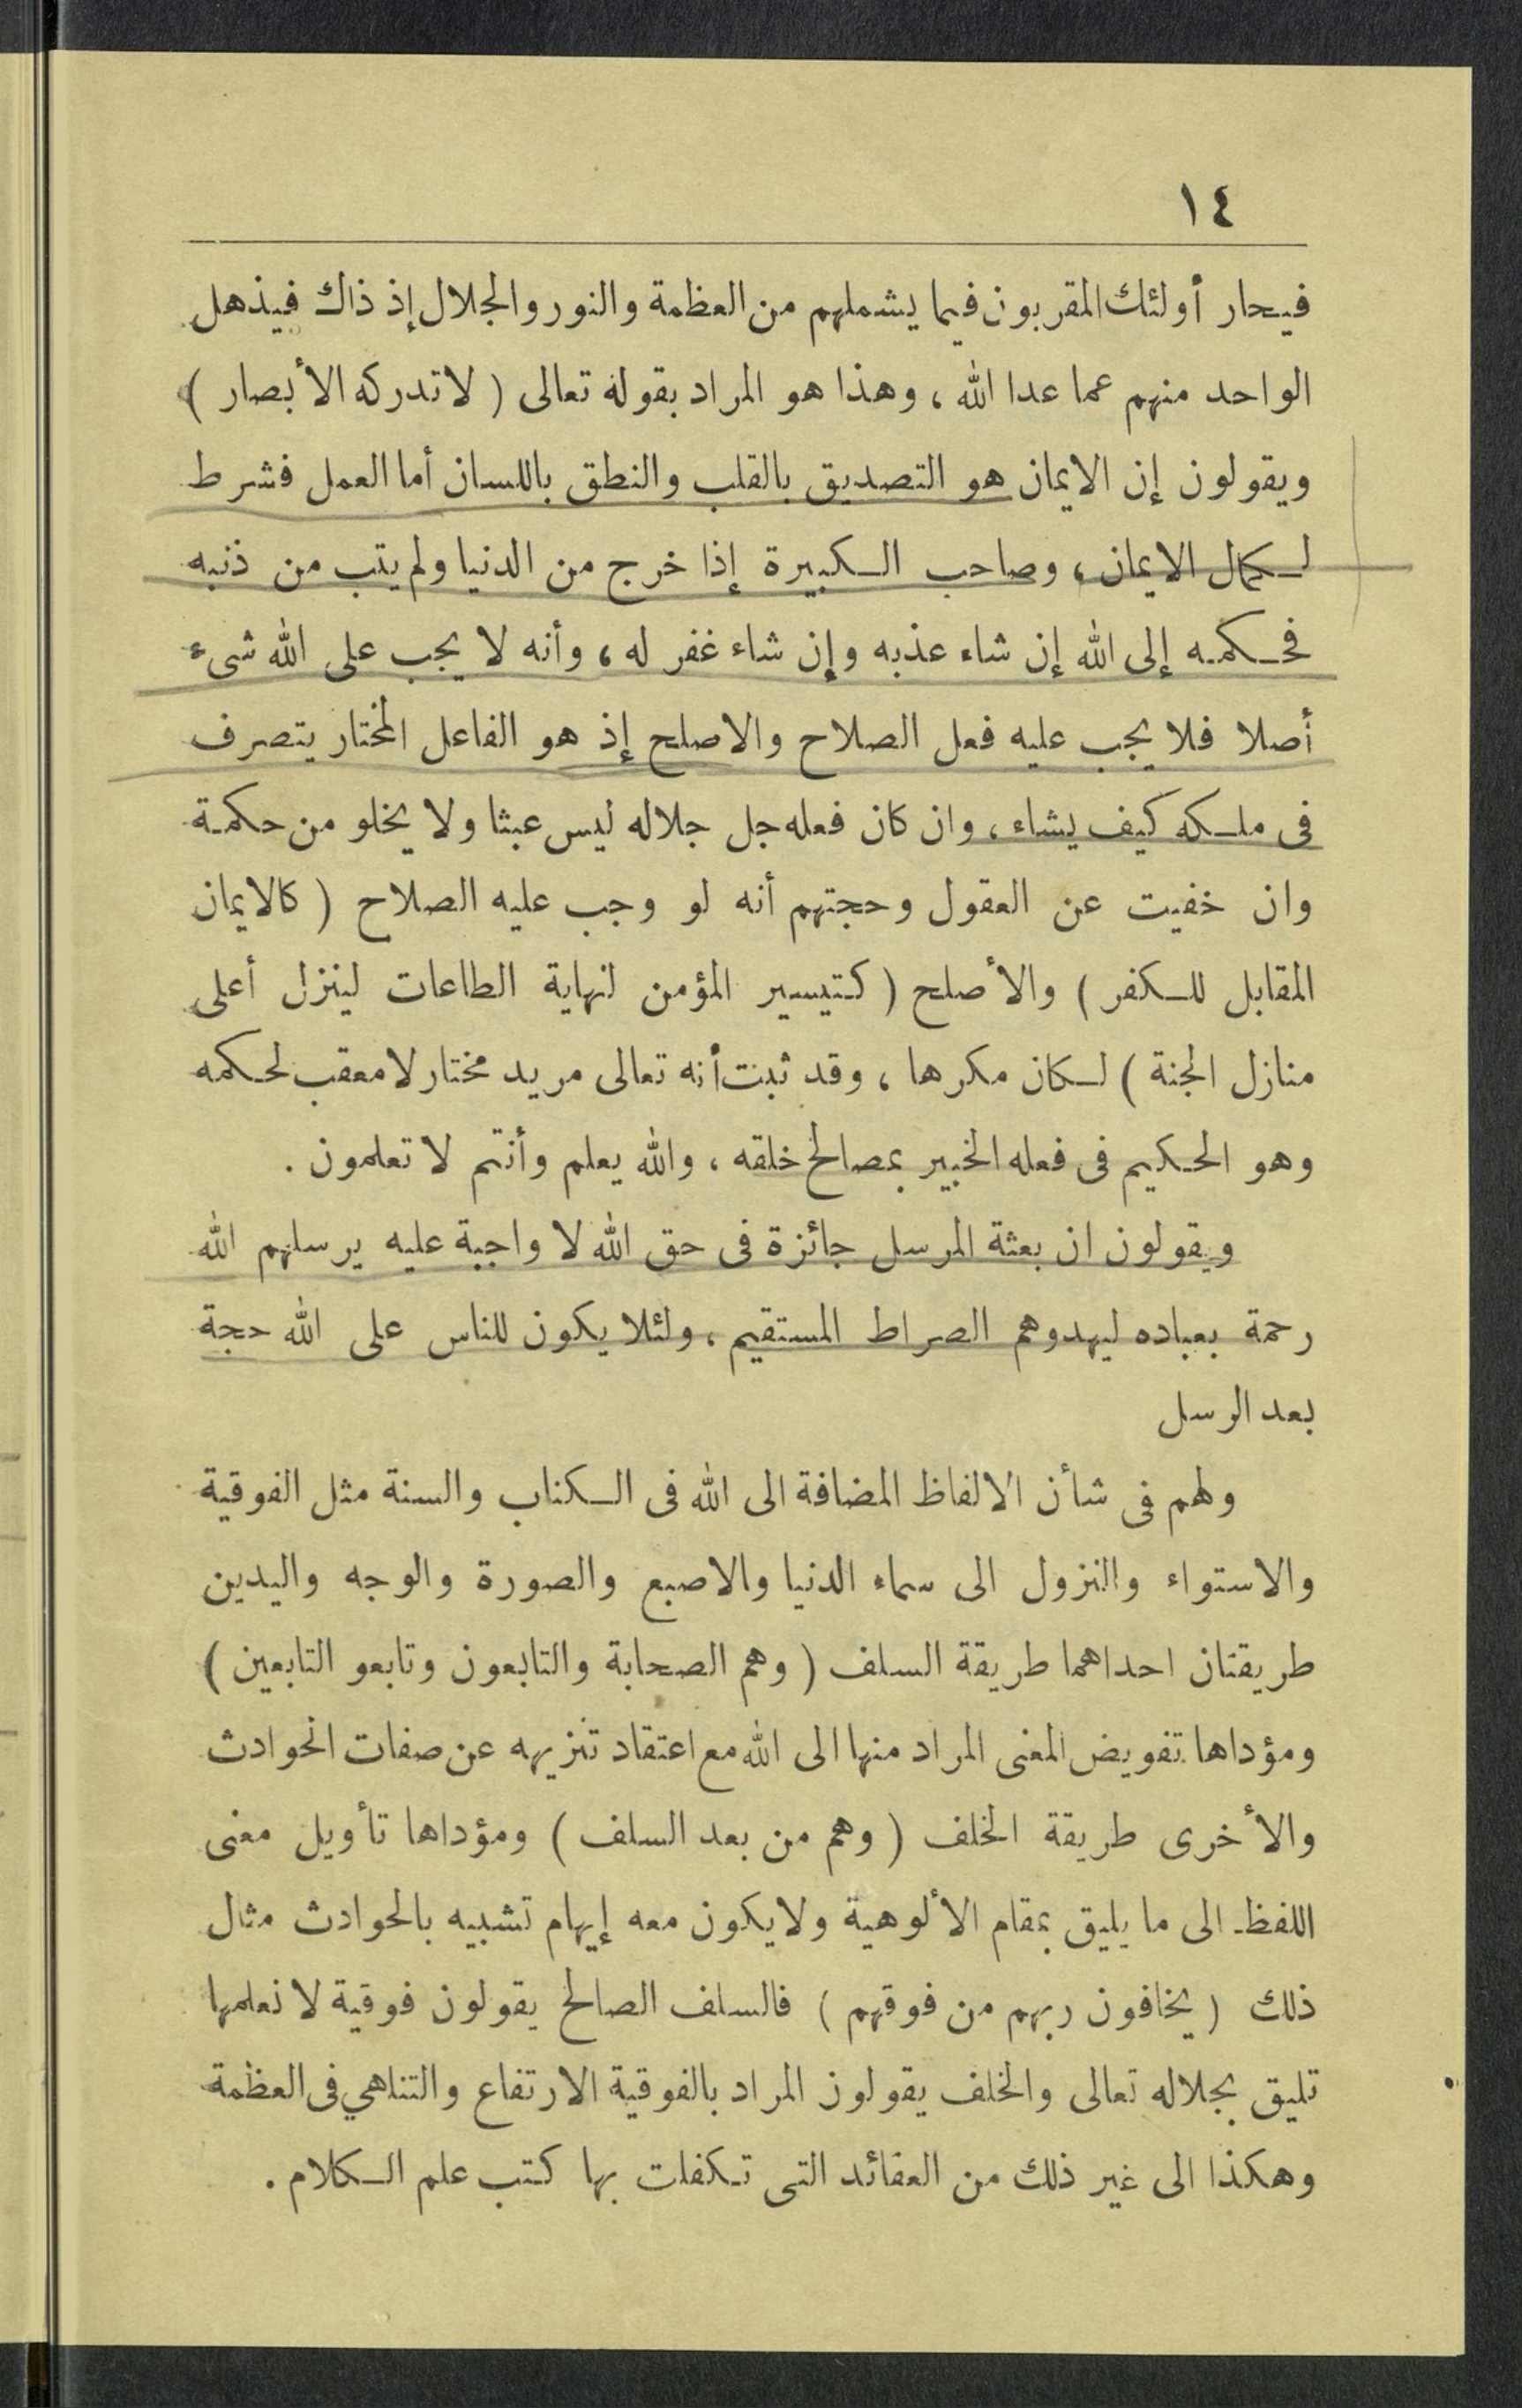 ١٤
فيحار أولئك المقربون فيما يشملهم من العظمة والنور والجلال إذ ذاك فيذهل
الواحد منهم عما عدا الله ، وهذا هو المراد بقوله تعالى ( لا تدركه الأبصار )
ويقولون إن الايمان هو التصديق بالقلب والنطق باللسان أما العمل فشرط
لكمال الايمان ، وصاحب الكبيرة إذا خرج من الدنيا ولم يتب من ذنبه
فحكمه إلى الله إن شاء عذبه وإن شاء غفر له ، وأنه لا يجب على الله شىء
أصلا فلا يجب عليه فعل الصلاح والاصلح إذ هو الفاعل المختار يتصرف
فى ملكه كيف يشاء ، وان كان فعله جل جلاله ليس عبثا ولا يخلو من حكمة
وان خفيت عن العقول وحجتهم أنه لو وجب عليه الصلاح ( كالايمان
المقابل للكفر ) والأصلح ( كتيسير المؤمن لنهاية الطاعات لينزل أعلى
منازل الجنة ) لكان مكرها ، وقد ثبت أنه تعالى مريد مختار لا معقب لحكمه
وهو الحكيم فى فعله الخبير بمصالح خلقه ، والله يعلم وأنتم لا تعلمون .
ويقولون ان بعثة الرسل جائزة فى حق الله لا واجبة عليه يرسلهم الله
رحمة بعباده ليهدوهم الصراط المستقيم ، ولئلا يكون للناس على الله حجة
بعد الرسل
ولهم فى شأن الالفاظ المضافة الى الله فى الكتاب والسنة مثل الفوقية
والاستواء والنزول الى سماء الدنيا والاصبع والصورة والوجه واليدين
طريقتان احداهما طريقة السلف ( وهم الصحابة والتابعون وتابعو التابعين )
ومؤداها تفويض المعنى المراد منها الى الله مع اعتقاد تنزيهه عن صفات الحوادث
والأخرى طريقة الخلف ( وهم من بعد السلف ) ومؤداها تأويل معنى
اللفظ الى ما يليق بمقام الألوهية ولا يكون معه إيهام تشبيه بالحوادث مثال
ذلك ( يخافون ربهم من فوقهم ) فالسلف الصالح يقولون فوقية لا نعلمها
تليق بجلاله تعالى والخلف يقولون المراد بالفوقية الارتفاع والتناهي فى العظمة
وهكذا الى غير ذلك من العقائد التى تكفلت بها كتب علم الكلام .